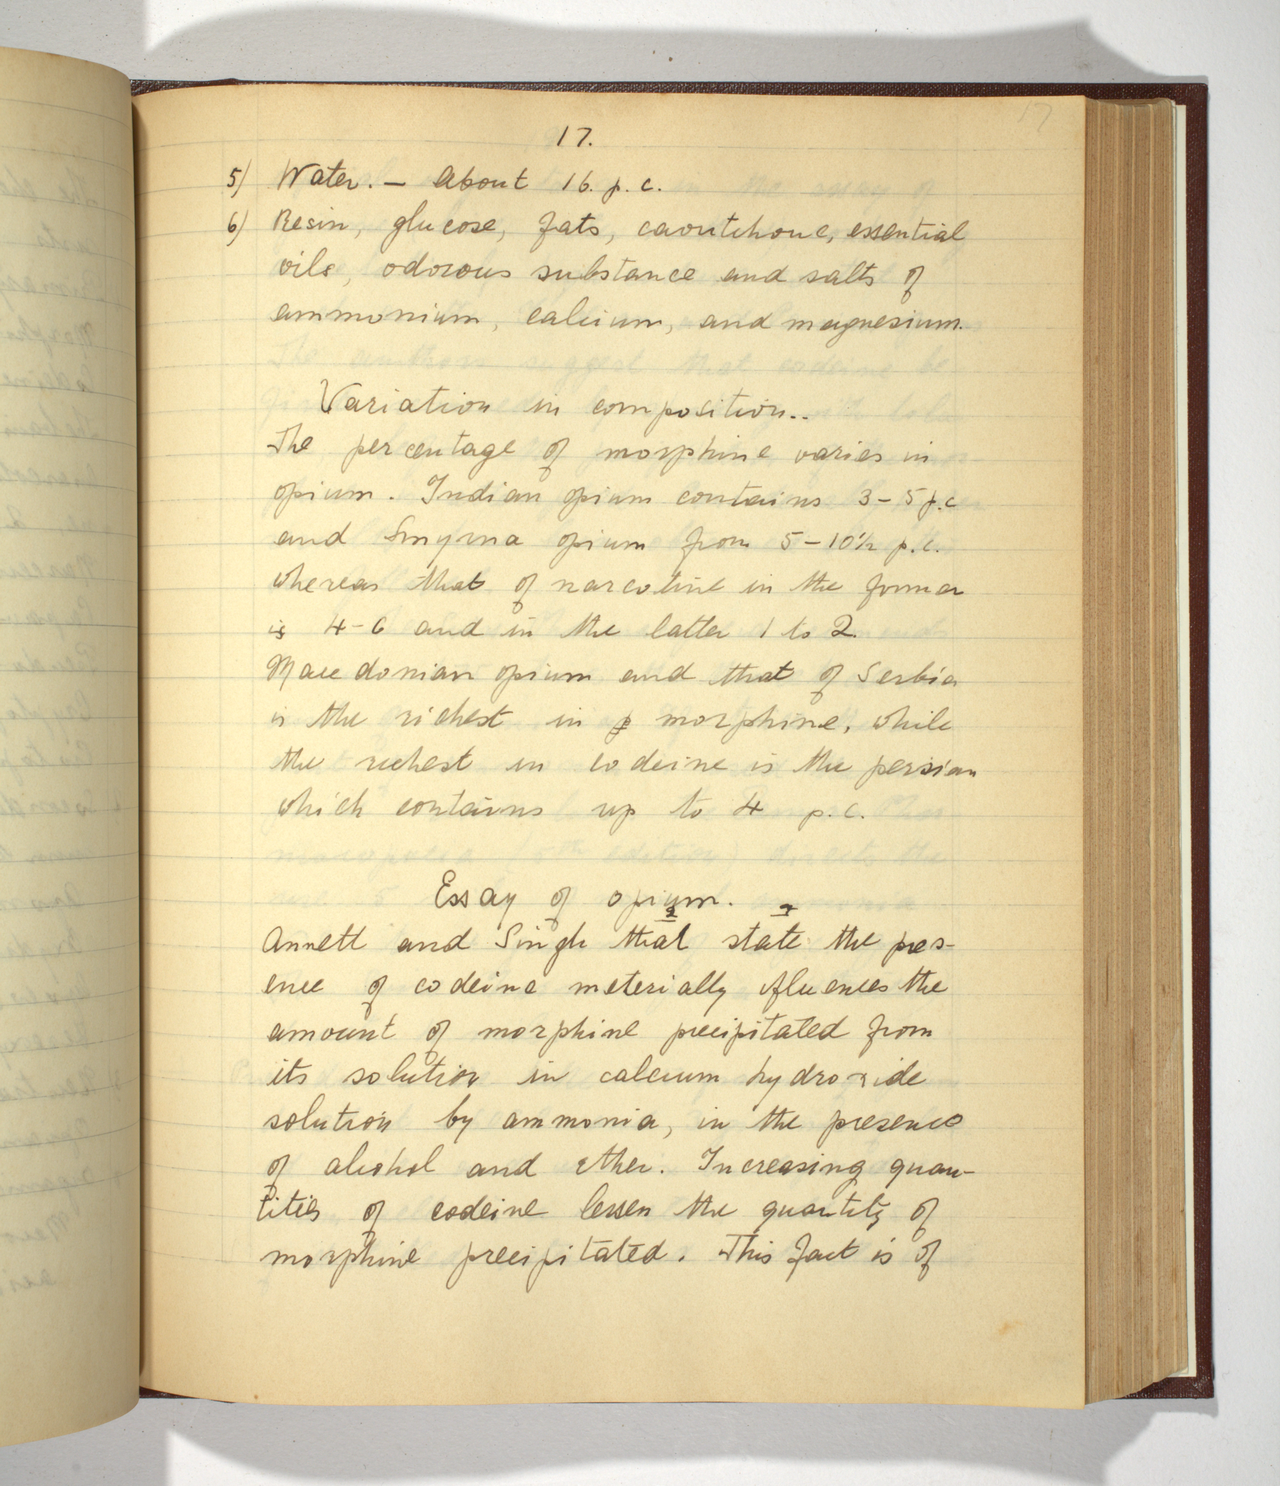 17
17.
5) Water. — About 16. p. c.
6) Resin, glucose, fats, caoutchouc, essential
oils, odorous substance and salts of
ammonium, calcium, and magnesium.
Variation in composition..
The percentage of morphine varies in
opium. Indian opium contains 3-5 p.c
and Smyrna opium from 5-10½ p.c.
whereas that of narcotine in the former
is 4-6 and in the latter 1 to 2.
Macedonian opium and that of Serbia
is the richest in p morphine, while
the richest in codeine is the persian
which contains up to 4 p.c.
Essay of opium.
2 1
Annett and Singh that state the pres-
ence of codeine meterially ifluences the
amount of morphine precipitated from
its solution in calcium hydroxide
solution by ammonia, in the presence
of alcohol and ether. Increasing quan-
tities of codeine lessen the quantity of
morphine precipitated. This fact is of